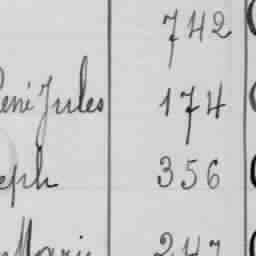 742
René Jules 174
eph 356
Marie 247